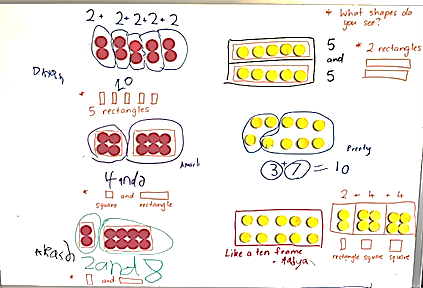 2 + 2 + 2 + 2 + 2
10
5 rectangles
4 and
square and rectangle
Akash
2 and 8
and
* What shapes do
you see?
5
and
5
* 2 rectangles
Pretty
3 + 7 = 10
Like a ten frame
2 + 4 + 4
rectangle square square